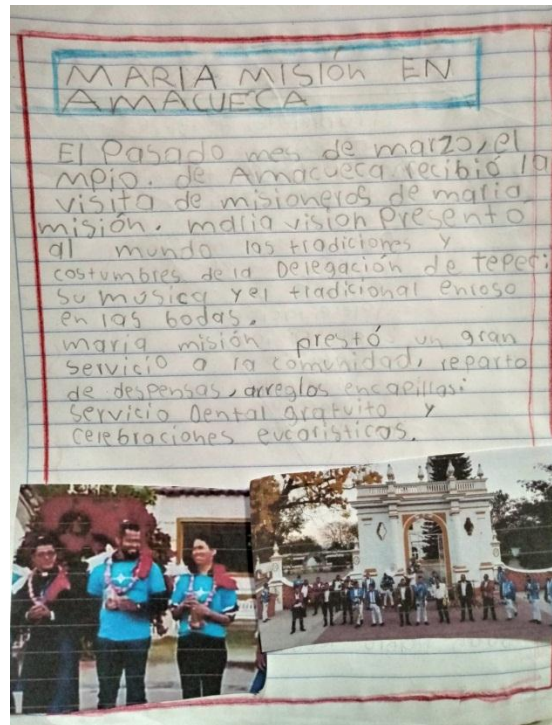 MARIA MISIÓN EN
AMACUECA
El Pasado mes de marzo, el
mpio. de Amacueca recibió la
visita de misioneros de maria
misión. maria vision Presentó
al mundo las tradiciones y
costumbres de la Delegación de tepec;
su música y el tradicional enroso
en las bodas.
maria misión prestó un gran
servicio a la comunidad, reparto
de despensas, arreglos encapillas;
servicio Dental gratuito y
celebraciones eucaristicas.